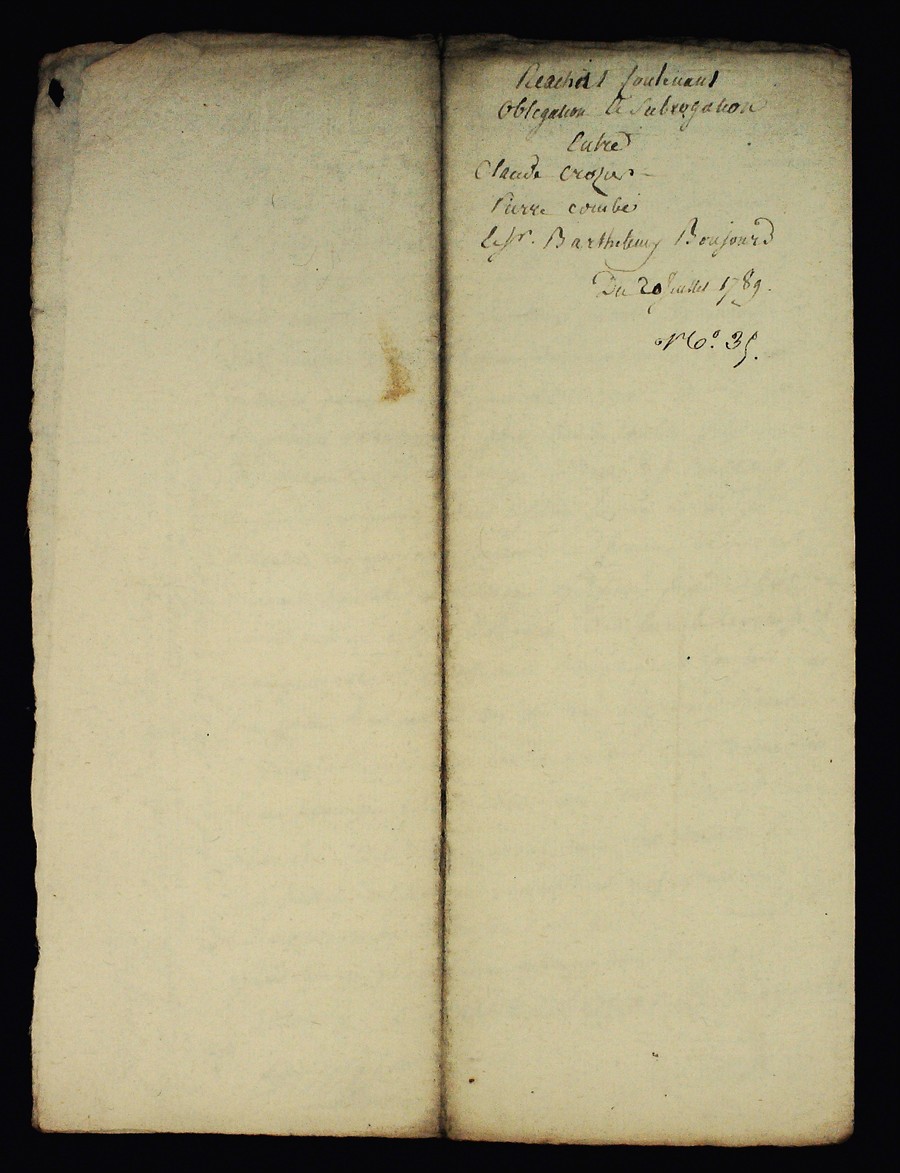 Reachat Contenant
Obligation et Subrogation
Entre
Claude crozier
Pierre combe
Le Sr. Barthelemy Boujourd
Du 20 Juillet 1789.
No. 35.